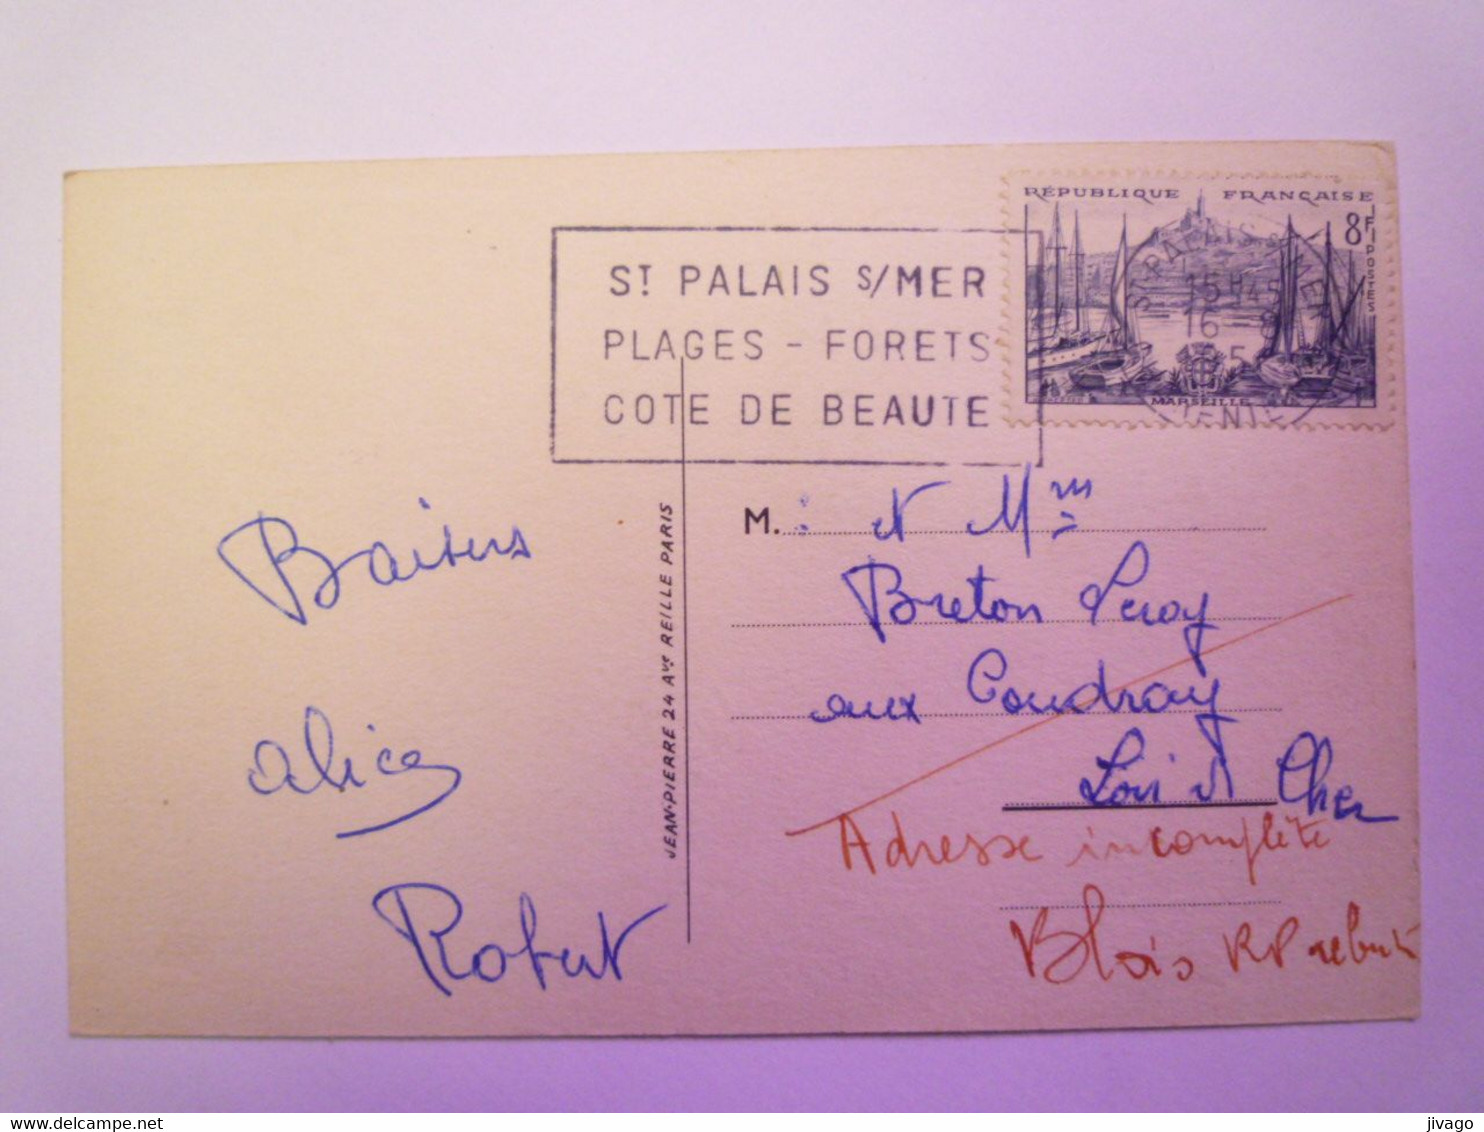 St PALAIS s/MER
PLAGES - FORETS
COTE DE BEAUTE
RÉPUBLIQUE FRANÇAISE
8F
POSTES
MARSEILLE
ST PALAIS S MER
15H45
16 - 8
Baisers
alice
Robert
JEAN-PIERRE 24 AVE REILLE PARIS
M. et Mme
Breton Leroy
aux Coudray
Loir et Cher
Adresse incomplète
Blois RP rebut
jivago